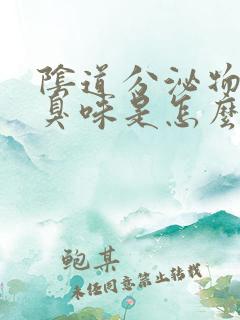 陰道分泌物
臭味是怎麼
鲍某
未经同意禁止转载